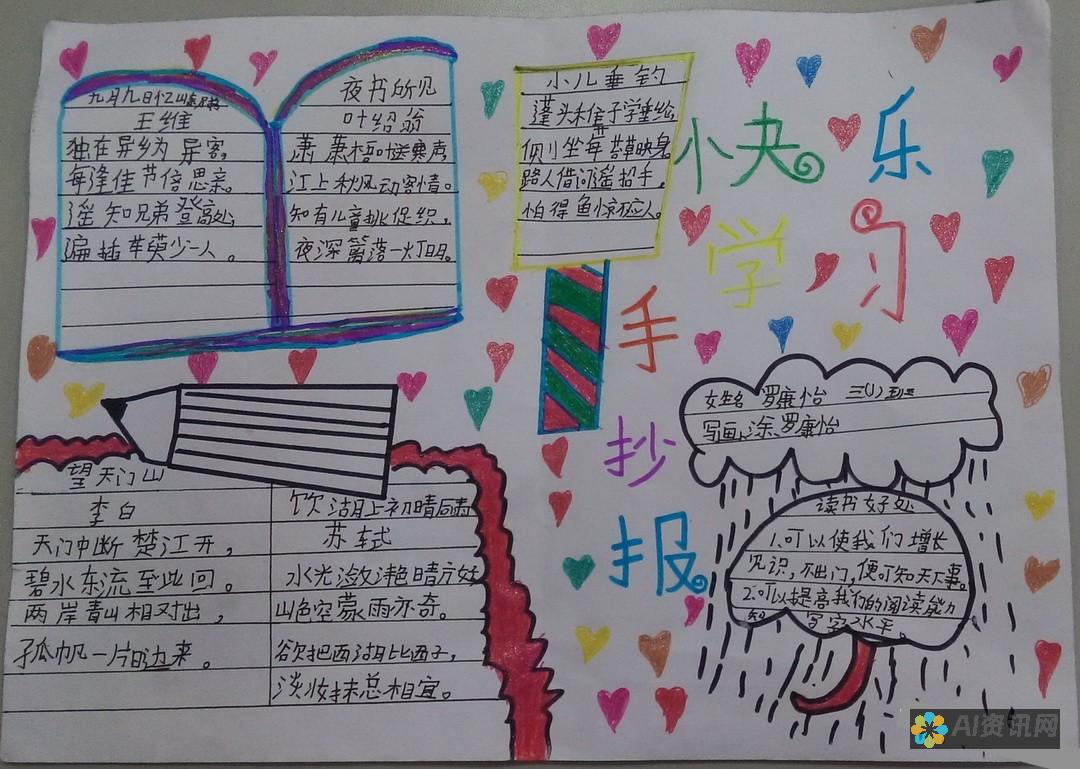 九月九日忆山东兄弟
王维
独在异乡为异客,
每逢佳节倍思亲。
遥知兄弟登高处,
遍插茱萸少一人。
夜书所见
叶绍翁
萧萧梧叶送寒声
江上秋风动客情。
知有儿童挑促织,
夜深篱落一灯明。
小儿垂钓
蓬头稚子学垂纶
侧坐莓苔草映身
路人借问遥招手,
怕得鱼惊不应人。
小夬乐
学习
手
抄
报
望天门山
李白
天门中断楚江开,
碧水东流至此回。
两岸青山相对出,
孤帆一片日边来。
饮湖上初晴后雨
苏轼
水光潋滟晴方好
山色空蒙雨亦奇。
欲把西湖比西子,
淡妆抹总相宜。
女生名 罗康怡 三(1)班
写画、涂、罗康怡
读书好处
1.可以使我们增长
见识,不出门,便可知天下事。
2.可以提高我们的阅读能力
和写字水平。
AI资讯网